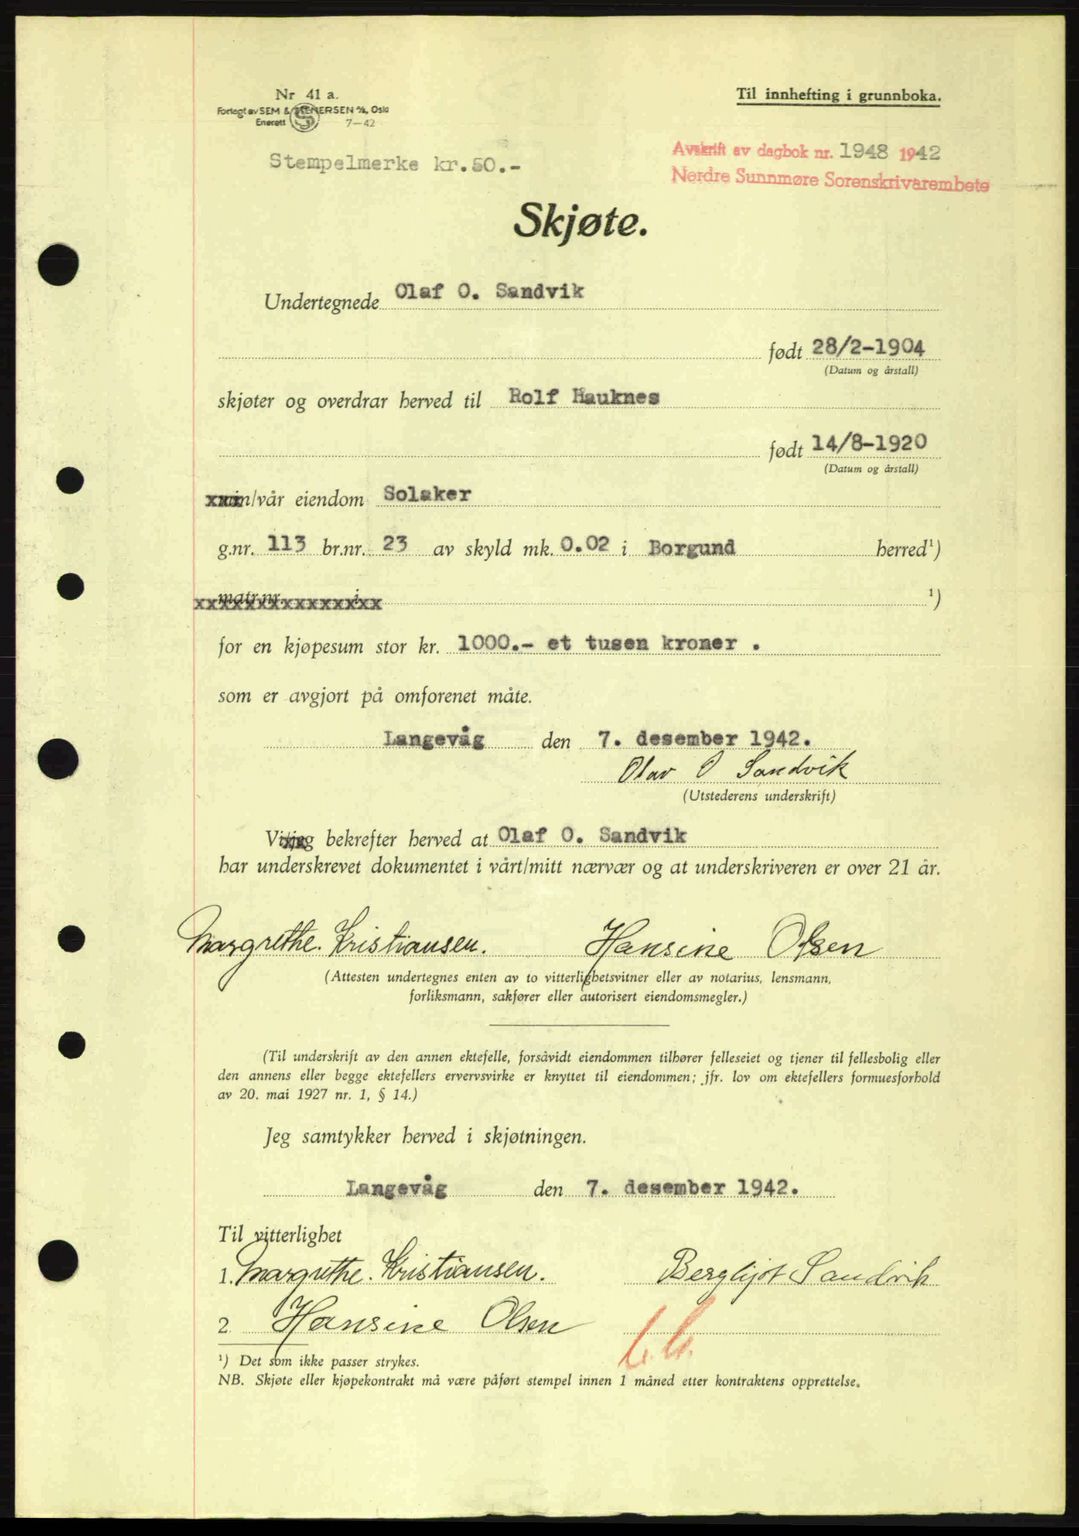 Nr 41 a.
Forlagt av SEM & STENERSEN A/S, Oslo
Enerett 7—42
Til innhefting i grunnboka.
Stempelmerke kr.50.-
Avskrift av dagbok nr. 1948 1942
Nordre Sunnmøre Sorenskrivarembete
Skjøte.
Undertegnede Olaf O. Sandvik
født 28/2-1904
(Datum og årstall)
skjøter og overdrar herved til Rolf Hauknes
født 14/8-1920
(Datum og årstall)
xxxin/vår eiendom Solaker
g.nr. 113 br.nr. 23 av skyld mk. 0.02 i Borgund herred¹)
matr.nr. i ¹)
for en kjøpesum stor kr. 1000.- et tusen kroner .
som er avgjort på omforenet måte.
Langevåg den 7. desember 1942.
Olav O Sandvik
(Utstederens underskrift)
Vi/jeg bekrefter herved at Olaf O. Sandvik
har underskrevet dokumentet i vårt/mitt nærvær og at underskriveren er over 21 år.
Margrethe. Kristiansen. Hansine Olsen
(Attesten undertegnes enten av to vitterlighetsvitner eller av notarius, lensmann,
forliksmann, sakfører eller autorisert eiendomsmegler.)
(Til underskrift av den annen ektefelle, forsåvidt eiendommen tilhører felleseiet og tjener til fellesbolig eller
den annens eller begge ektefellers ervervsvirke er knyttet til eiendommen; jfr. lov om ektefellers formuesforhold
av 20. mai 1927 nr. 1, § 14.)
Jeg samtykker herved i skjøtningen.
Langevåg den 7. desember 1942.
Til vitterlighet
1. Margrethe. Kristiansen. Bergljot Sandvik
2 Hansine Olsen
¹) Det som ikke passer strykes.
NB. Skjøte eller kjøpekontrakt må være påført stempel innen 1 måned etter kontraktens opprettelse.